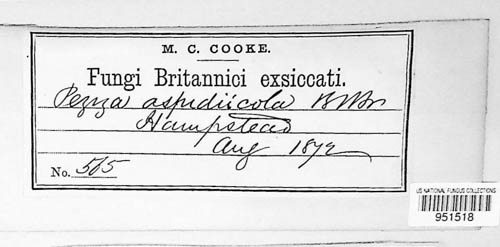 M. C. COOKE.
Fungi Britannici exsiccati.
Peziza aspidiicola B & Br
Hampstead
Aug 1872
No. 565
US NATIONAL FUNGUS COLLECTIONS
951518